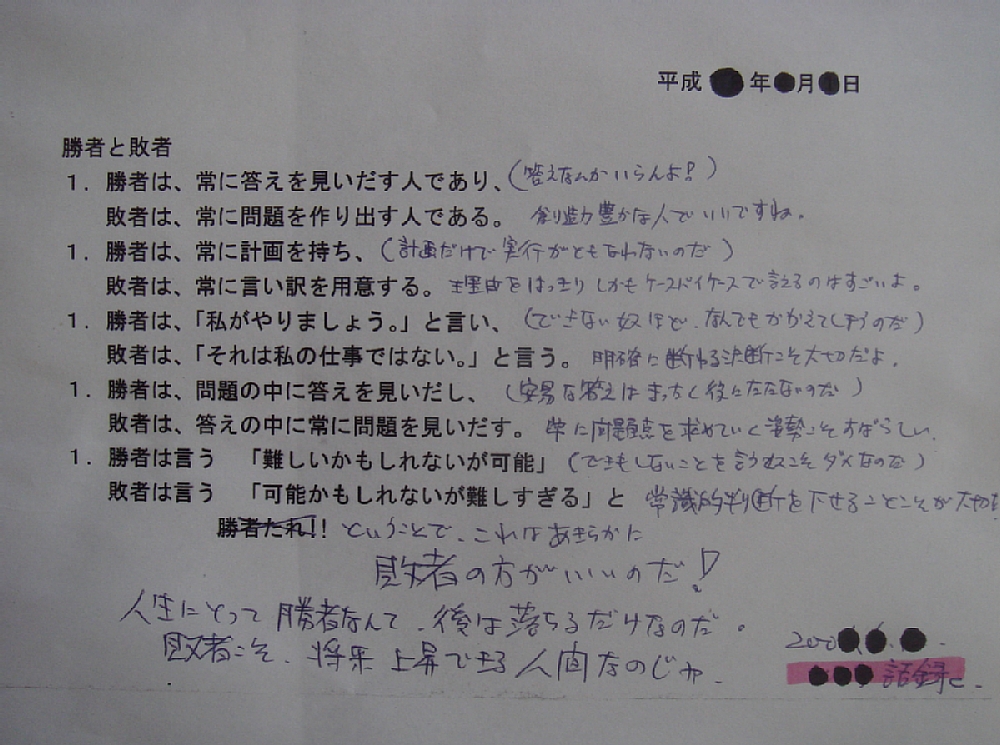 平成 年 月 日
勝者と敗者
1. 勝者は、常に答えを見いだす人であり、(答えなんかいらんよ!)
敗者は、常に問題を作り出す人である。 創造力豊かな人でいいですね。
1. 勝者は、常に計画を持ち、(計画だけで実行がともなわないのだ)
敗者は、常に言い訳を用意する。 理由をはっきりしかもケースバイケースで言えるのはすごいよ。
1. 勝者は、「私がやりましょう。」と言い、(できない奴ほど、なんでもかかえてしまうのだ)
敗者は、「それは私の仕事ではない。」と言う。 明確に断わる決断こそ大切だよ。
1. 勝者は、問題の中に答えを見いだし、 (安易な答えはまったく役にたたないのだ)
敗者は、答えの中に常に問題を見いだす。 常に問題点を求めていく姿勢こそすばらしい。
1. 勝者は言う 「難しいかもしれないが可能」(できもしないことを言う奴こそダメなのだ)
敗者は言う 「可能かもしれないが難しすぎる」と 常識的判断を下せることこそが大切
勝者たれ!! ということで、これはあきらかに
敗者の方がいいのだ!
人生にとって勝者なんて、後は落ちるだけなのだ。
敗者こそ、将来上昇できる人間なのじゃ。
200
語録